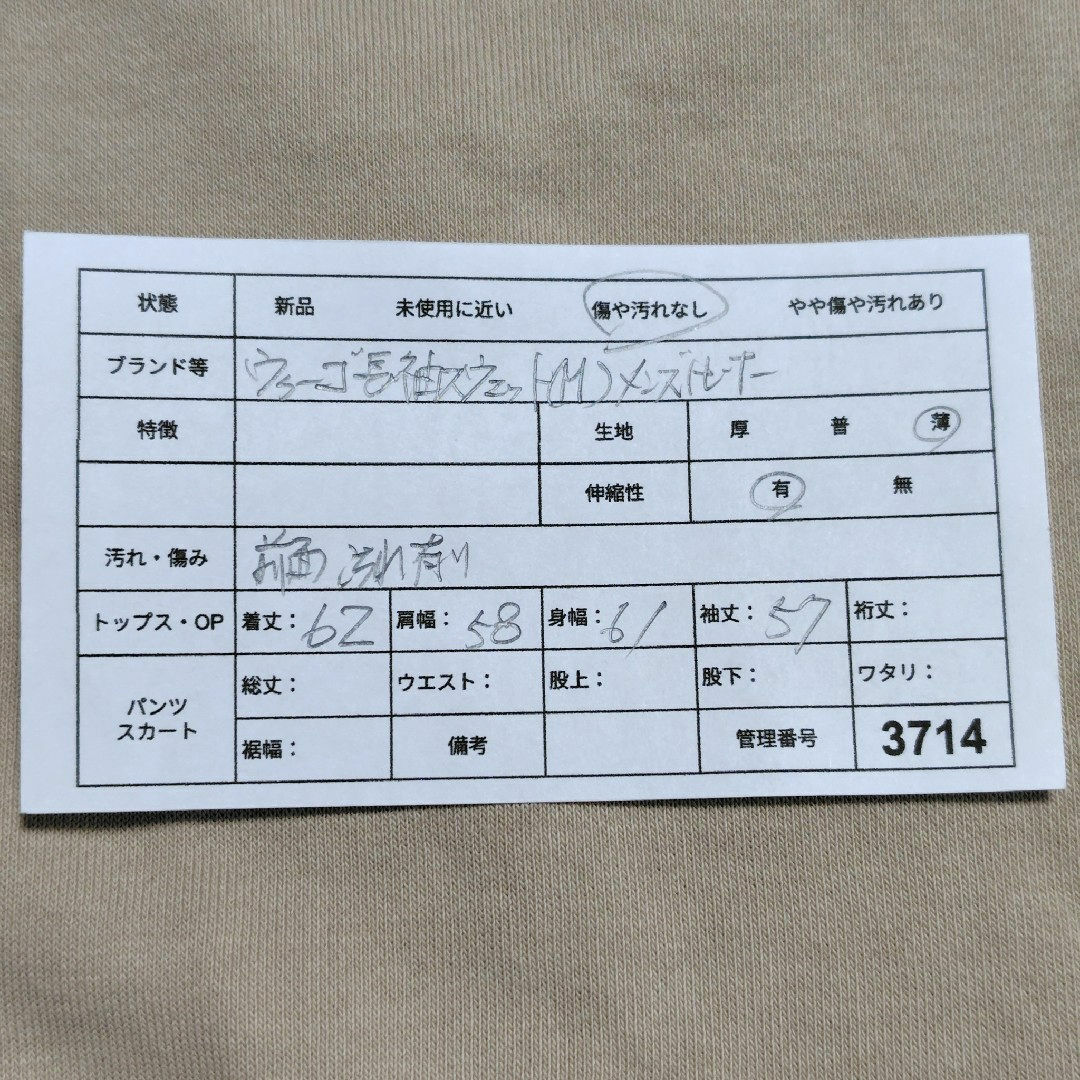 状態 新品 未使用に近い 傷や汚れなし やや傷や汚れあり
ブランド等 ウィゴー 長袖スウェット(M)メンズトレーナー
特徴 生地 厚 普 薄
伸縮性 有 無
汚れ・傷み 前面 汚れ有り
トップス・OP 着丈：62 肩幅：58 身幅：61 袖丈：57 裄丈：
パンツ スカート 総丈： ウエスト： 股上： 股下： ワタリ：
裾幅： 備考 管理番号 3714